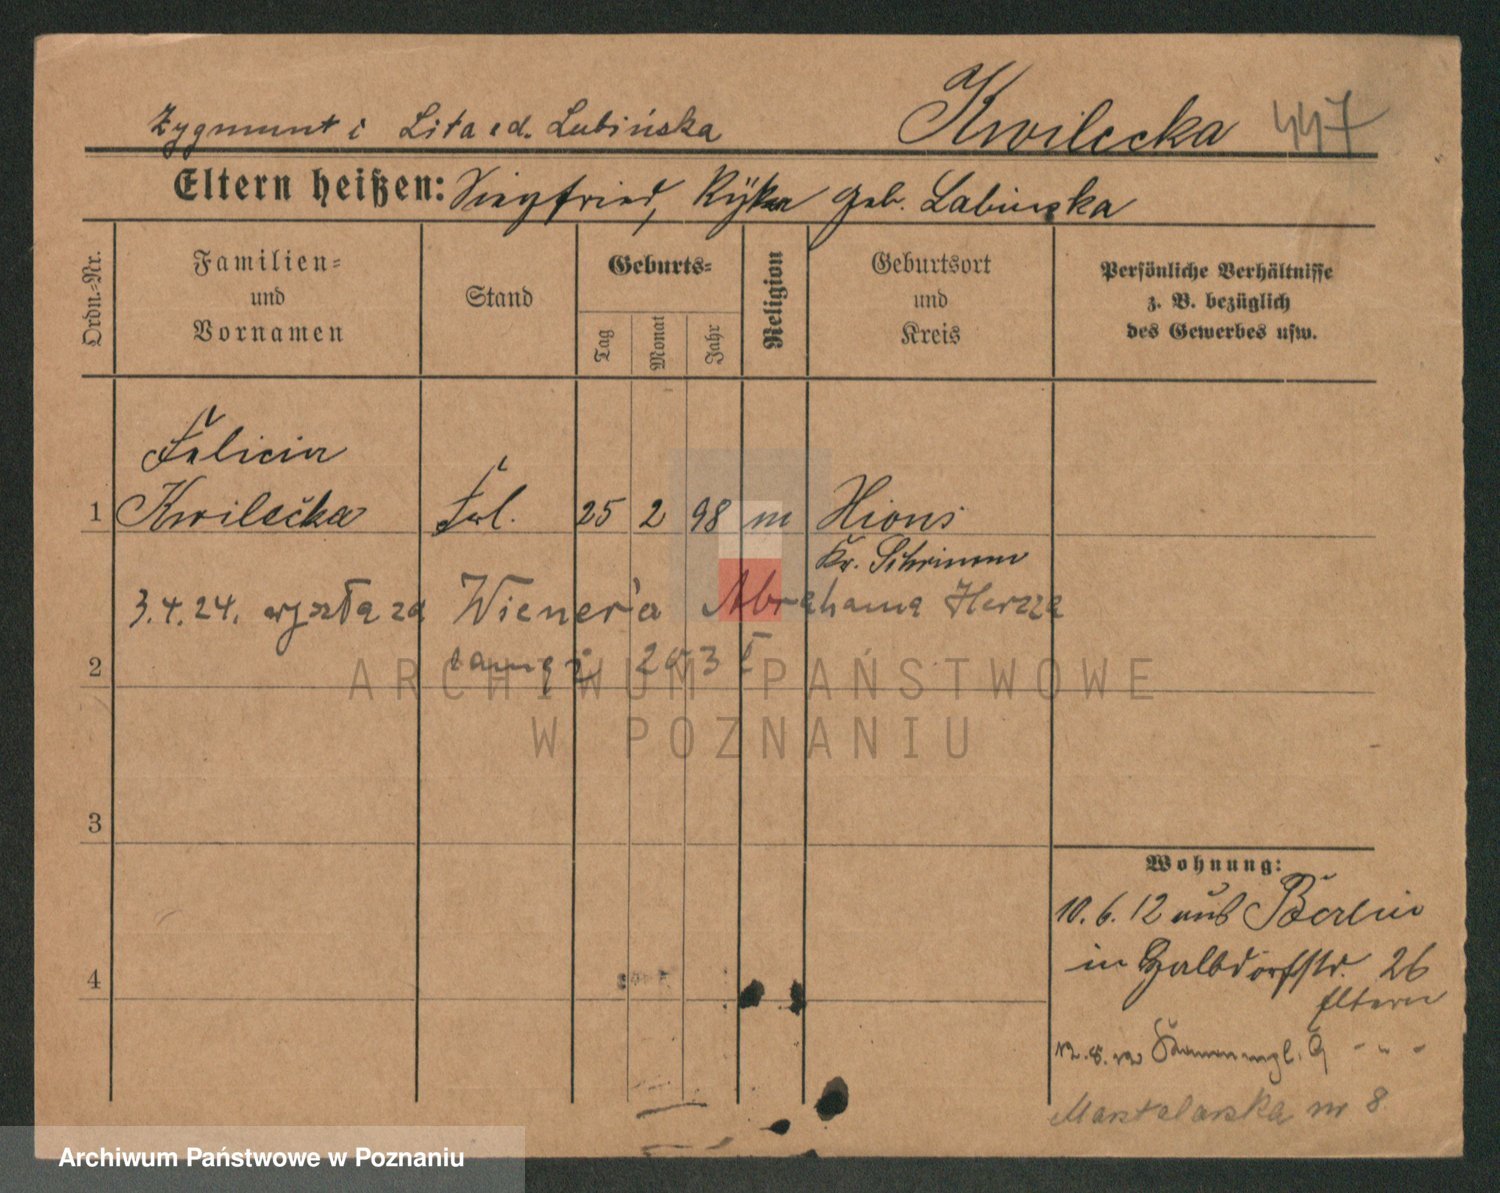 Zygmunt i Lita z d. Lubińska Kwilecka 447
Eltern heißen: Siegfried, Rijka geb. Labinska
Ordn.-Nr.
Familien-
und
Vornamen
Stand
Geburts-
Tag
Monat
Jahr
Religion
Geburtsort
und
Kreis
Persönliche Verhältnisse
z. B. bezüglich
des Gewerbes usw.
Felicia
1 Kwilecka Frl. 25 2 98 m Xions
Kr. Schrimm
3.4.24. wyszła za Wiener'a Abrahama Hersza
2
ARCHIWUM PAŃSTWOWE
W POZNANIU
3
Wohnung:
10.6.12 aus Berlin
4 in Halbdorfstr. 26
Eltern
12.8.12 G - " -
Masztalarska nr 8
Archiwum Państwowe w Poznaniu